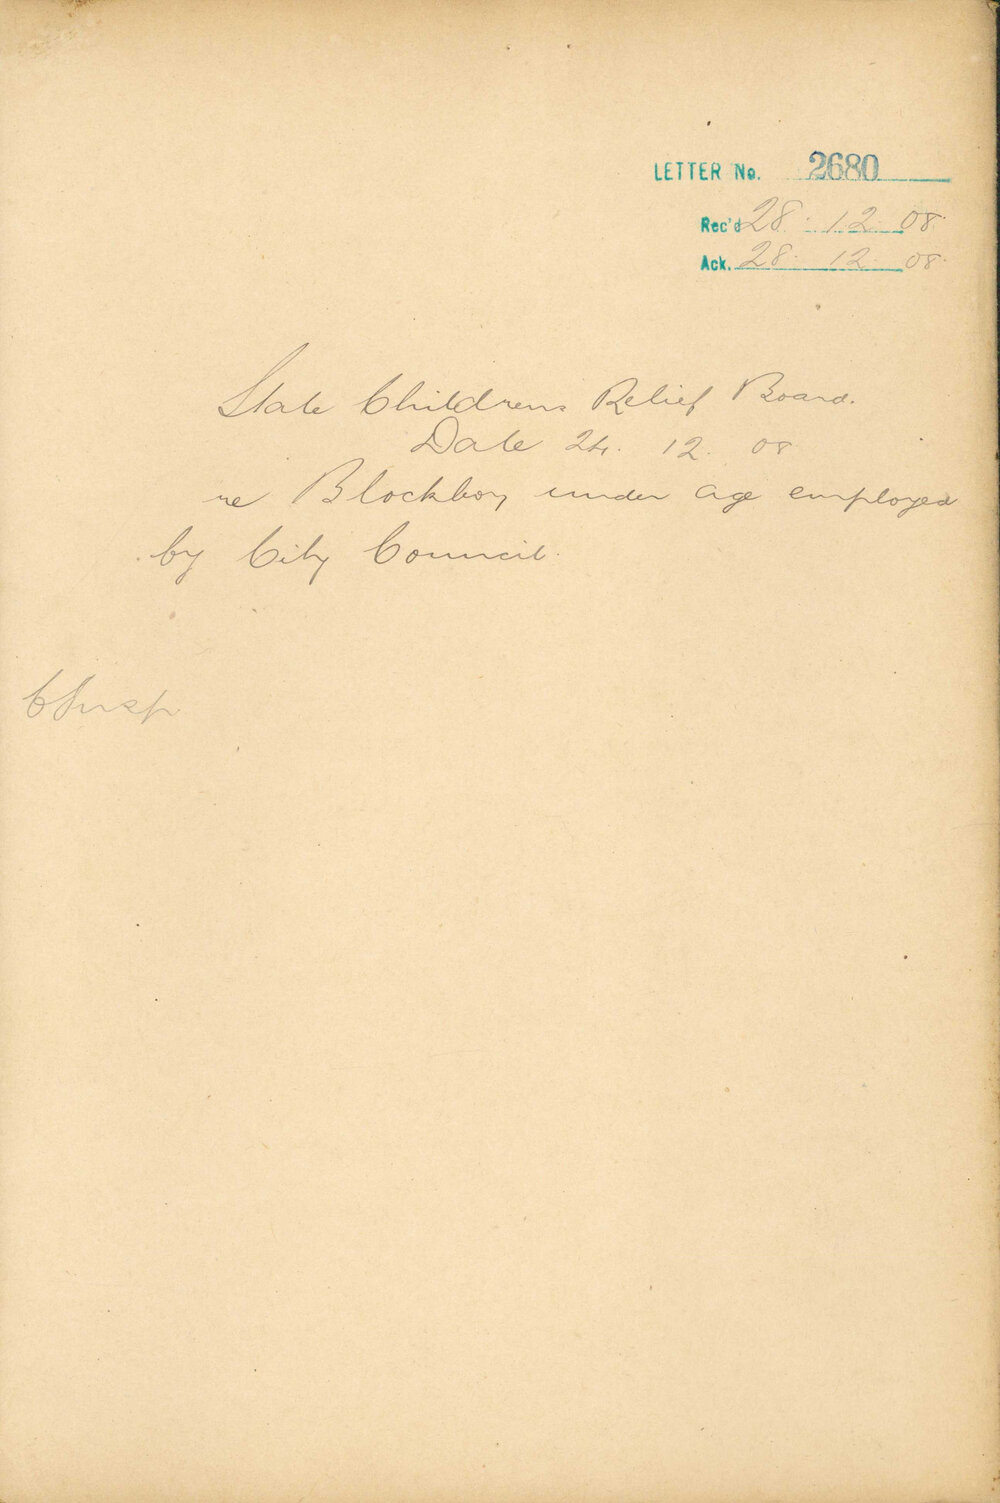 LETTER No. 2680
Rec'd 28. 12. 08.
Ack. 28. 12. 08.
State Childrens Relief Board.
Date 24. 12. 08
re Blockboy under age employed
by City Council.
C Insp